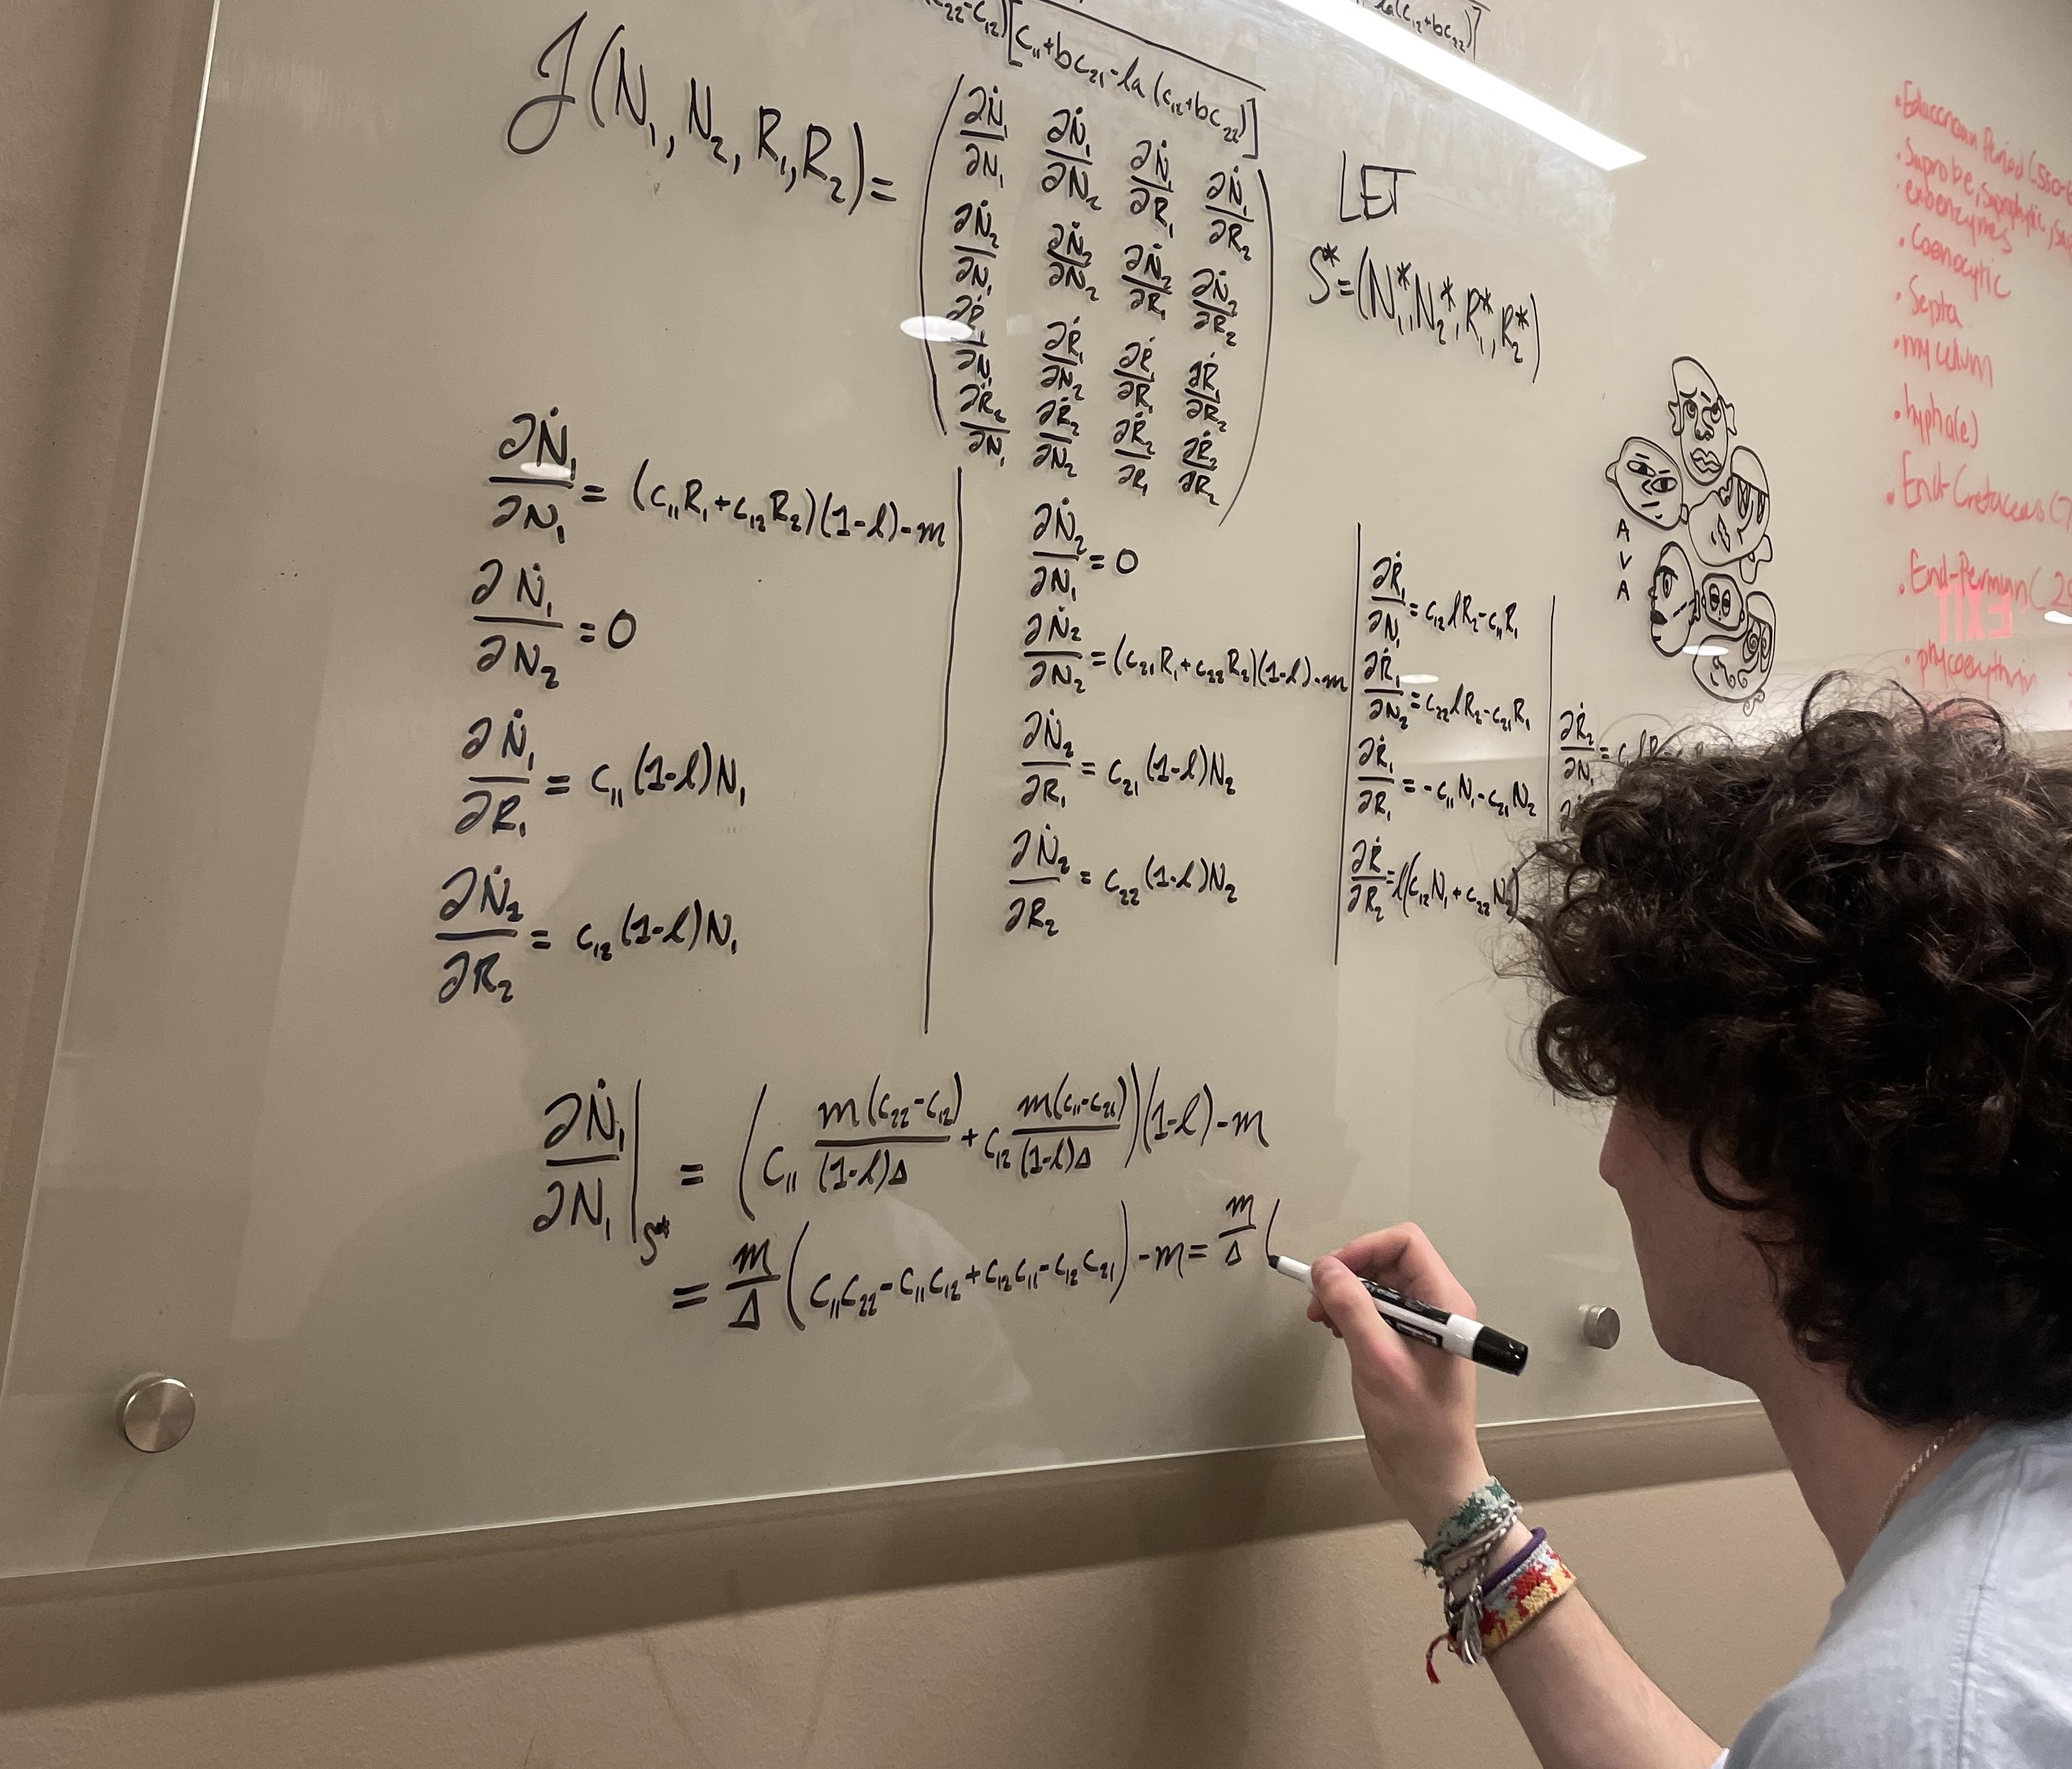 [c₁₁+bc₂₁-la(c₁₂+bc₂₂)]
J(N₁, N₂, R₁, R₂)=
∂Ṅ₁/∂N₁ ∂Ṅ₁/∂N₂ ∂Ṅ₁/∂R₁ ∂Ṅ₁/∂R₂
∂Ṅ₂/∂N₁ ∂Ṅ₂/∂N₂ ∂Ṅ₂/∂R₁ ∂Ṅ₂/∂R₂
∂Ṙ₁/∂N₁ ∂Ṙ₁/∂N₂ ∂Ṙ₁/∂R₁ ∂Ṙ₁/∂R₂
∂Ṙ₂/∂N₁ ∂Ṙ₂/∂N₂ ∂Ṙ₂/∂R₁ ∂Ṙ₂/∂R₂
LET
S*=(N₁*, N₂*, R₁*, R₂*)
∂Ṅ₁/∂N₁ = (c₁₁R₁+c₁₂R₂)(1-l)-m
∂Ṅ₁/∂N₂ = 0
∂Ṅ₁/∂R₁ = c₁₁(1-l)N₁
∂Ṅ₂/∂R₂ = c₁₂(1-l)N₁
∂Ṅ₂/∂N₁ = 0
∂Ṅ₂/∂N₂ = (c₂₁R₁+c₂₂R₂)(1-l)-m
∂Ṅ₂/∂R₁ = c₂₁(1-l)N₂
∂Ṅ₂/∂R₂ = c₂₂(1-l)N₂
∂Ṙ₁/∂N₁ = c₁₂lR₂-c₁₁R₁
∂Ṙ₁/∂N₂ = c₂₂lR₂-c₂₁R₁
∂Ṙ₁/∂R₁ = -c₁₁N₁-c₂₁N₂
∂Ṙ/∂R₂ = l(c₁₂N₁+c₂₂N₂)
∂Ṙ₂/∂N₁ =
∂Ṅ₁/∂N₁|S* = (c₁₁ m(c₂₂-c₁₂)/(1-l)Δ + c₁₂ m(c₁₁-c₂₁)/(1-l)Δ)(1-l)-m
= m/Δ (c₁₁c₂₂-c₁₁c₁₂+c₁₂c₁₁-c₁₂c₂₁)-m = m/Δ (
A
V
A
Period
• Saprobe,
• exoenzymes
• Coenocytic
• Septa
• mycelium
• hypha(e)
• End-Cretaceous
• End-Permian
EXIT
• phycoerythrin